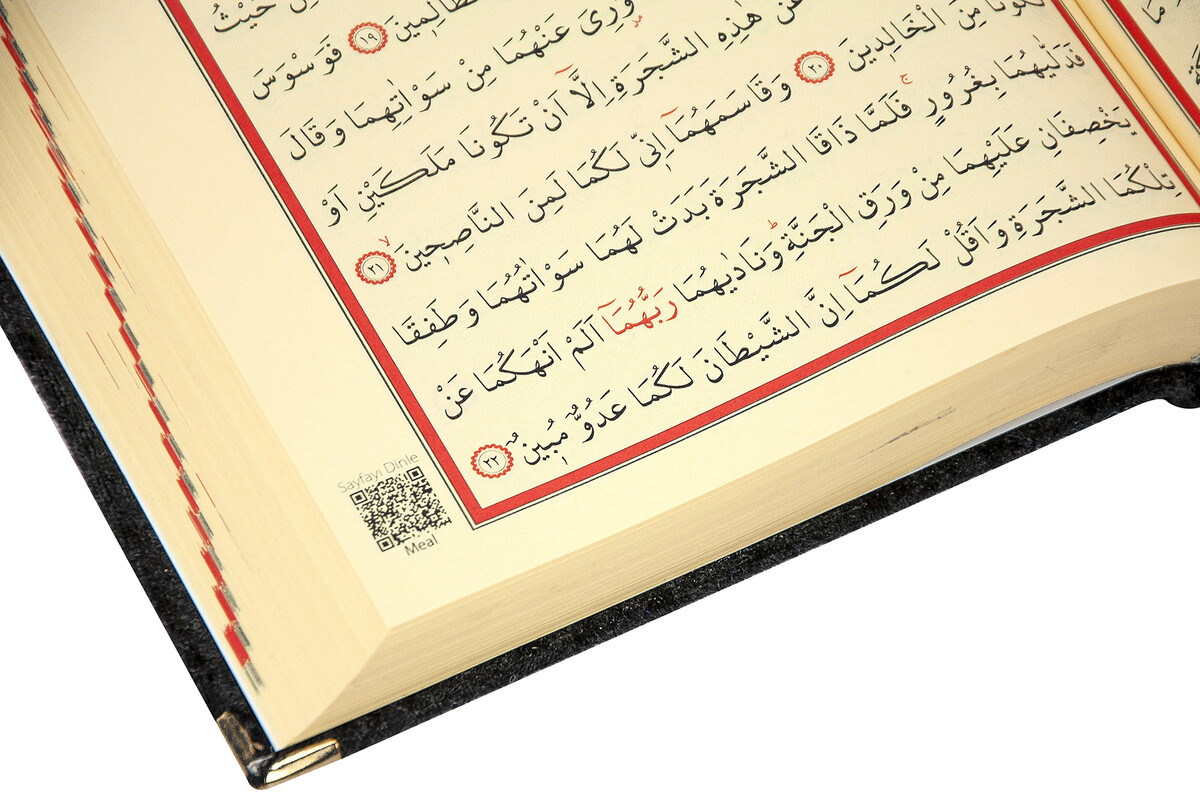 حَيْثُ
الظَّالِمٖينَ ﴿١٩﴾ فَوَسْوَسَ
وُرِىَ عَنْهُمَا مِنْ سَوْاٰتِهِمَا وَقَالَ
عَنْ هٰذِهِ الشَّجَرَةِ اِلَّٓا اَنْ تَكُونَا مَلَكَيْنِ اَوْ
تَكُونَا مِنَ الْخَالِدٖينَ ﴿٢٠﴾ وَقَاسَمَهُمَٓا اِنّٖى لَكُمَا لَمِنَ النَّاصِحٖينَۙ ﴿٢١﴾
فَدَلّٰيهُمَا بِغُرُورٍۚ فَلَمَّا ذَاقَا الشَّجَرَةَ بَدَتْ لَهُمَا سَوْاٰتُهُمَا وَطَفِقَا
يَخْصِفَانِ عَلَيْهِمَا مِنْ وَرَقِ الْجَنَّةِؕ وَنَادٰيهُمَا رَبُّهُمَٓا اَلَمْ اَنْهَكُمَا عَنْ
تِلْكُمَا الشَّجَرَةِ وَاَقُلْ لَكُمَٓا اِنَّ الشَّيْطَانَ لَكُمَا عَدُوٌّ مُبٖينٌ ﴿٢٢﴾
Sayfayı Dinle
Meal
مَا